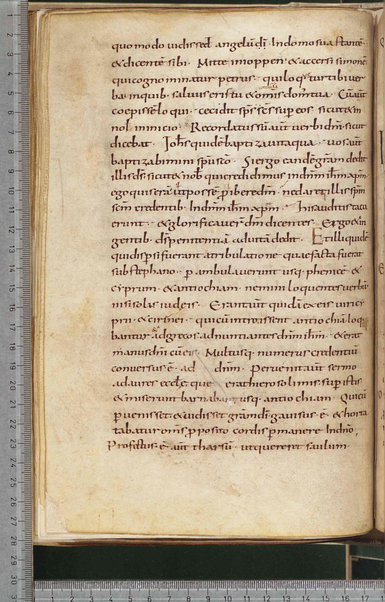 quo modo uidisset angelū dī. In domo sua stantē.
& dicentē sibi. Mitte in ioppen & accersi simonē
qui cognominatur petrus. qui loquetur tibi uer
ba in quib; saluus eris tu & omīs domꝰ tua. Cū aūt
coepissē loqui. cecidit sps scs sup eos. sicut & in
nos in inicio. Recordatus sū aūt uerbi dnī. sicut
dicebat. Iohs quidē baptizauit aqua. uos aūt
baptizabimini spū sco. Si ergo eandē gram dedit
illis ds sicut & nob qui credidimus in dnm ihm xpm.
ego quis erā qui possē phibere dm. ne daret illis spm
scm credentib; In dnm ihm xpm. His auditis tacu
erunt. & glorificauer dm dicentes. Ergo & in
gentib; ds penitentiā ad uitā dedit. Et illi quidē
qui dispersi fuerant a tribulatione quae facta fuerat
sub stephano. pambulauerunt usq; phenicē &
cyprum. & antiochiam. nemini loquentes uerbū
nisi solis iudeis. Erant aūt quidā ex eis uiri cy
prii. & cirinei. qui cū introissent antiochiā. loque
bantur & ad grecos. adnuntiantes dnm ihm. & erat
manus dni cū eis. Multusq; numerus credentiū
conuersus ē. ad dnm. Peruenit aūt sermo
ad aures eccle. que erat hierosolimis sup istis
& miserunt barnaban usq; antiochiam. Qui cū
puenisset & uidisset gram dī. gauisus ē. & horta
tabatur oms pposito cordis pmanere In dno.
Profectus. ē. aūt tharsū. ut quereret saulum